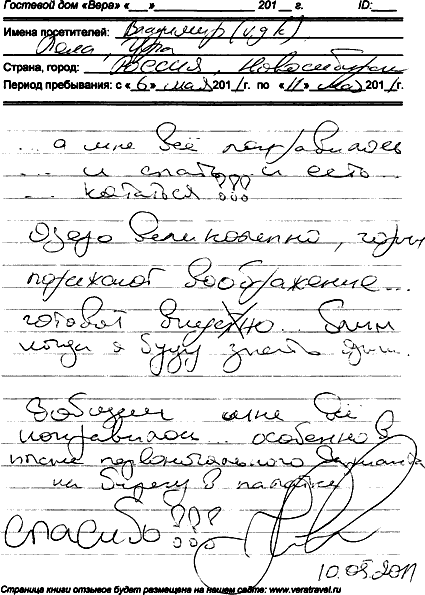 Гостевой дом «Вера» «___»______________ 201__ г. ID:____
Имена посетителей: Владимир (и д к)
Лена, Юра
Страна, город: Россия, Новосибирск
Период пребывания: с «6» мая 2011г. по «11» мая 2011г.
... а мне всё понравилось
... и спать и есть
... кататься !!!
Озеро великолепно, горы
поражают воображение...
готовят вкусно... блин
когда я буду знать
Вобщем мне всё
понравилось... особенно в
плане первоначального
на берегу в палатке
спасибо !!!
10.05.2011
Страница книги отзывов будет размещена на нашем сайте: www.veratravel.ru